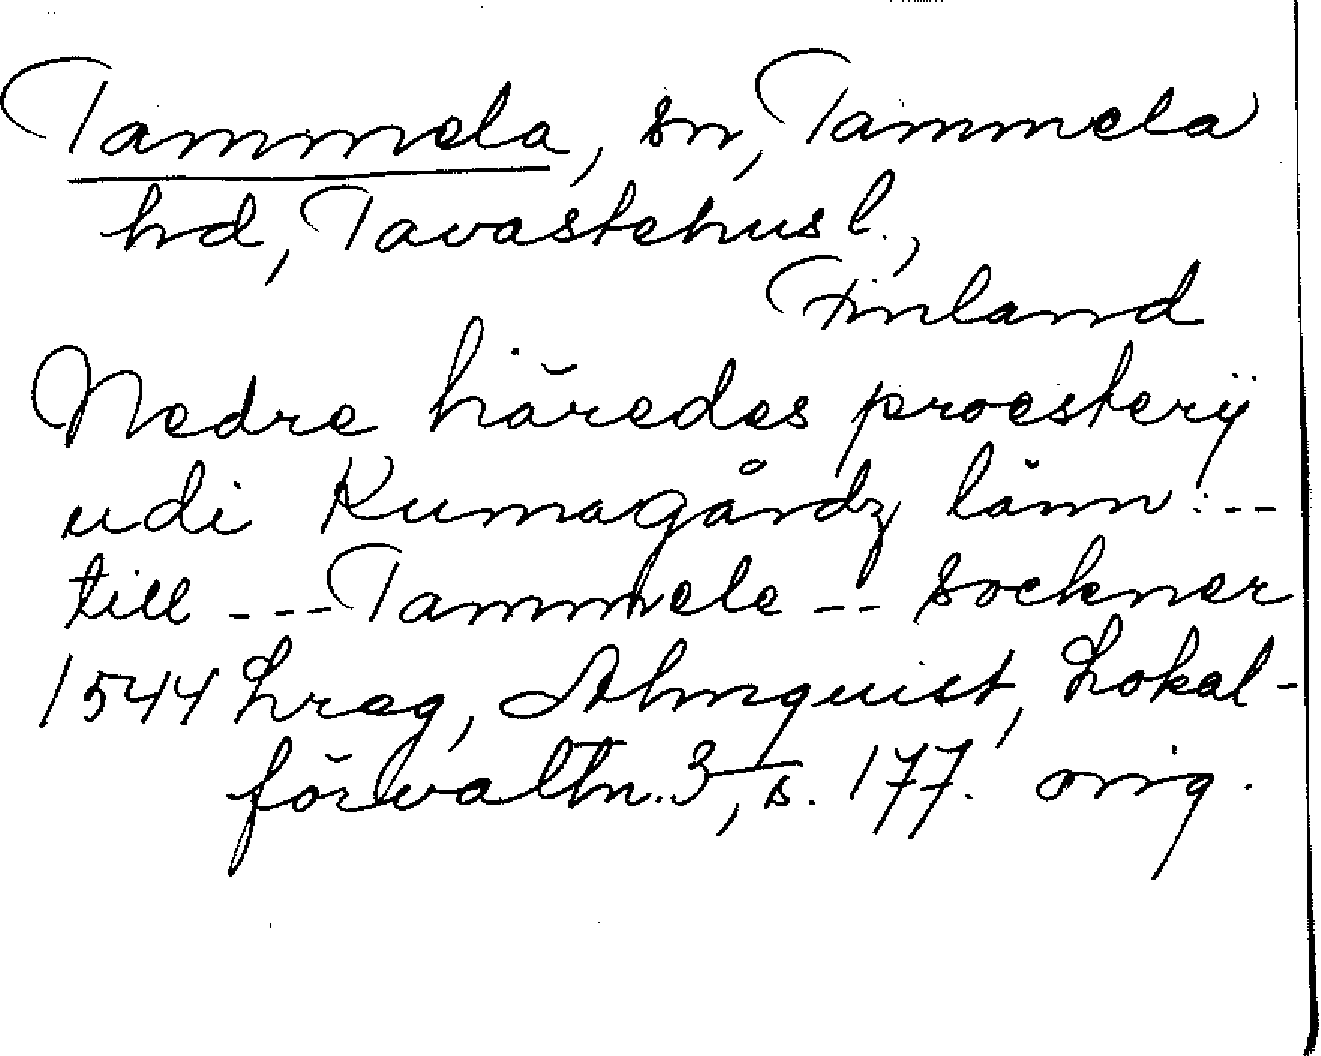 Tammela, sn, Tammela
hd, Tavastehus l.,
Finland
Nedre häredes proesterij
udi Kumagårdz länn: --
till --- Tammhele -- sockner
1544 Lreg, Almquist, Lokal-
förvaltn. 3, s. 177. orig.